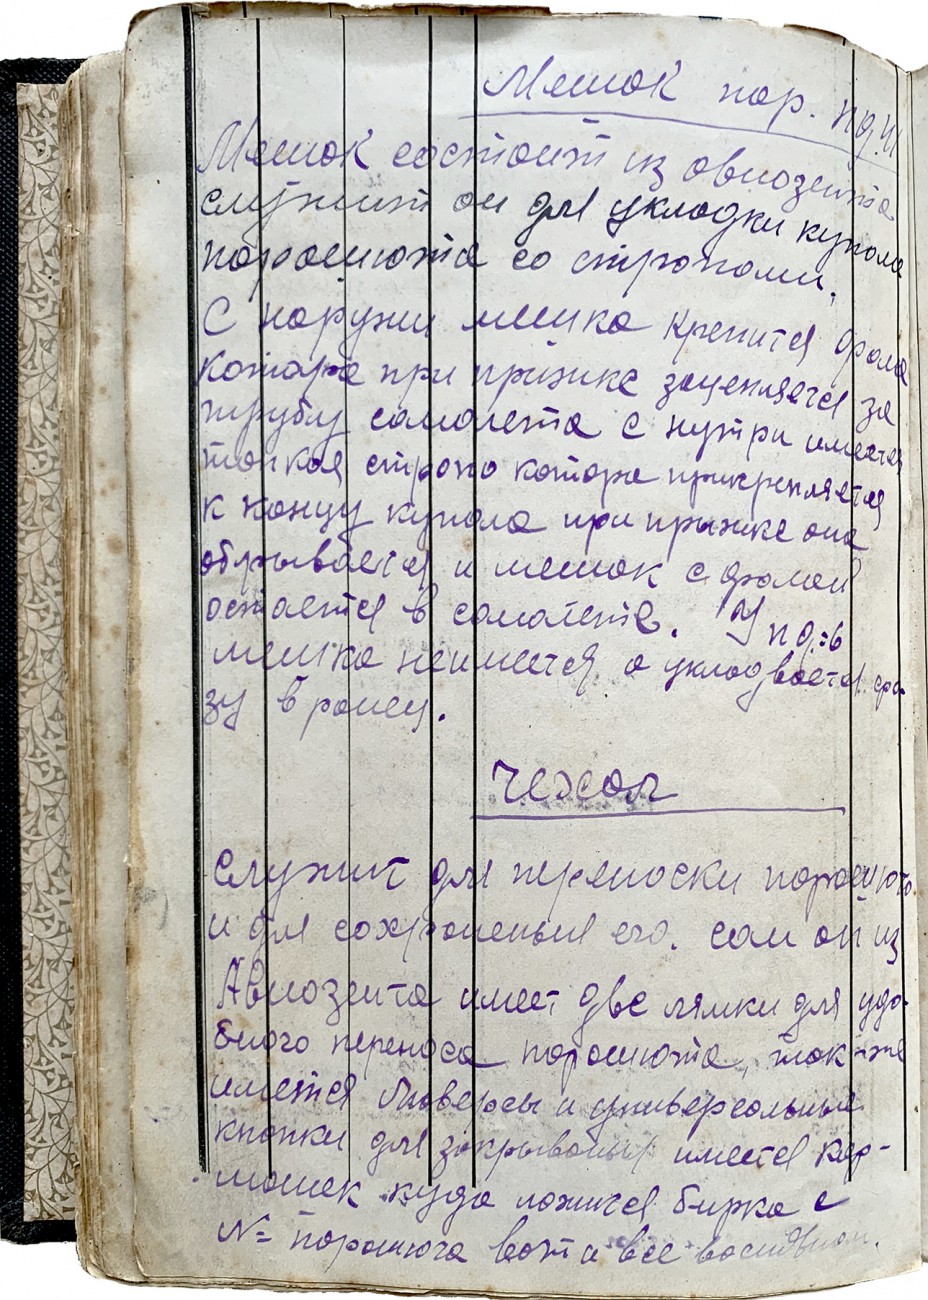 Мешок пар. пд.41
Мешок состоит из овиозента
служит он для укладки купола
парашюта со стропами.
С наружи мешка крепится фала
котора при прижке зацепляется за
трубу самолета с нутри имеется
тонкая стропо котора прикрепляется
к концу купола при прыжке она
обрывается и мешок с фалой
остается в самолете. У пд.=6
мешка неимеется а укладвается сра-
зу в ранец.
Чехол
служит для переноски парашюта
и для сохраненья его. сам он из
Авиозента имеет две лямки для удо-
бного переноса парашюта, так-же
имется Люверсы и униперсальные
кнопки для закрыванья имется кар-
машек куда ложится бирка с
№= парашюта вот и все